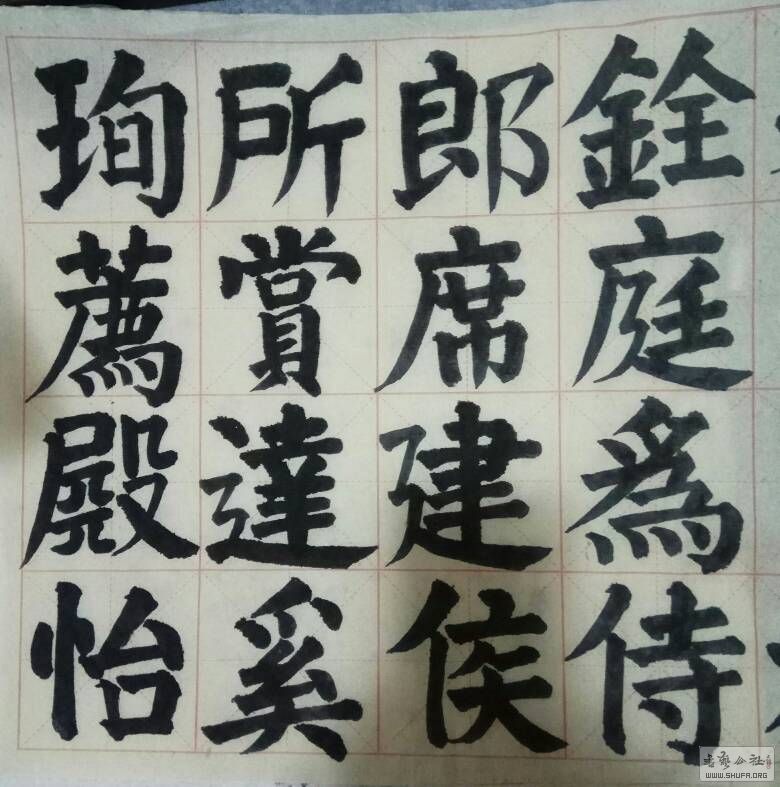 銓庭爲侍
郎席建侯
所賞達奚
珣薦殿怡
书艺公社
WWW.SHUFA.ORG